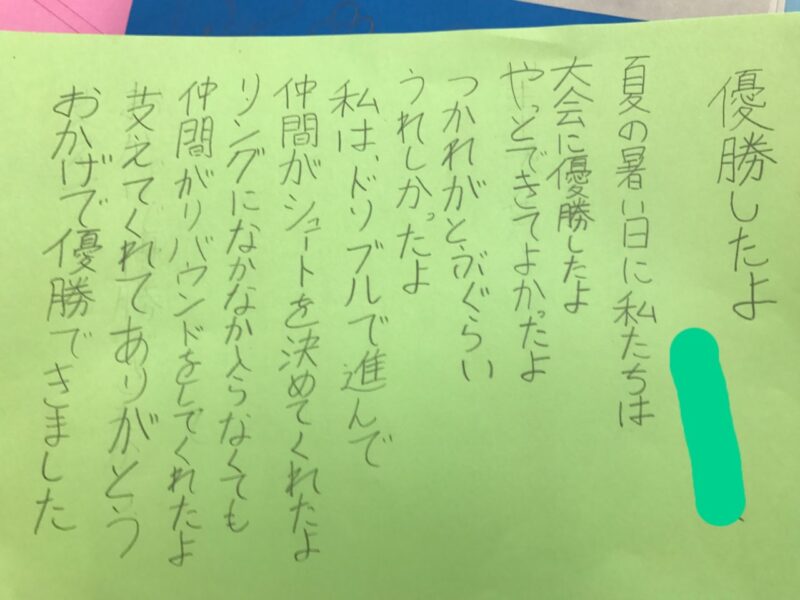 優勝したよ
夏の暑い日に私たちは
大会に優勝したよ
やっとできてよかったよ
つかれがとぶぐらい
うれしかったよ
私は、ドリブルで進んで
仲間がシュートを決めてくれたよ
リングになかなか入らなくても
仲間がリバウンドをしてくれたよ
支えてくれてありがとう
おかげで優勝できました